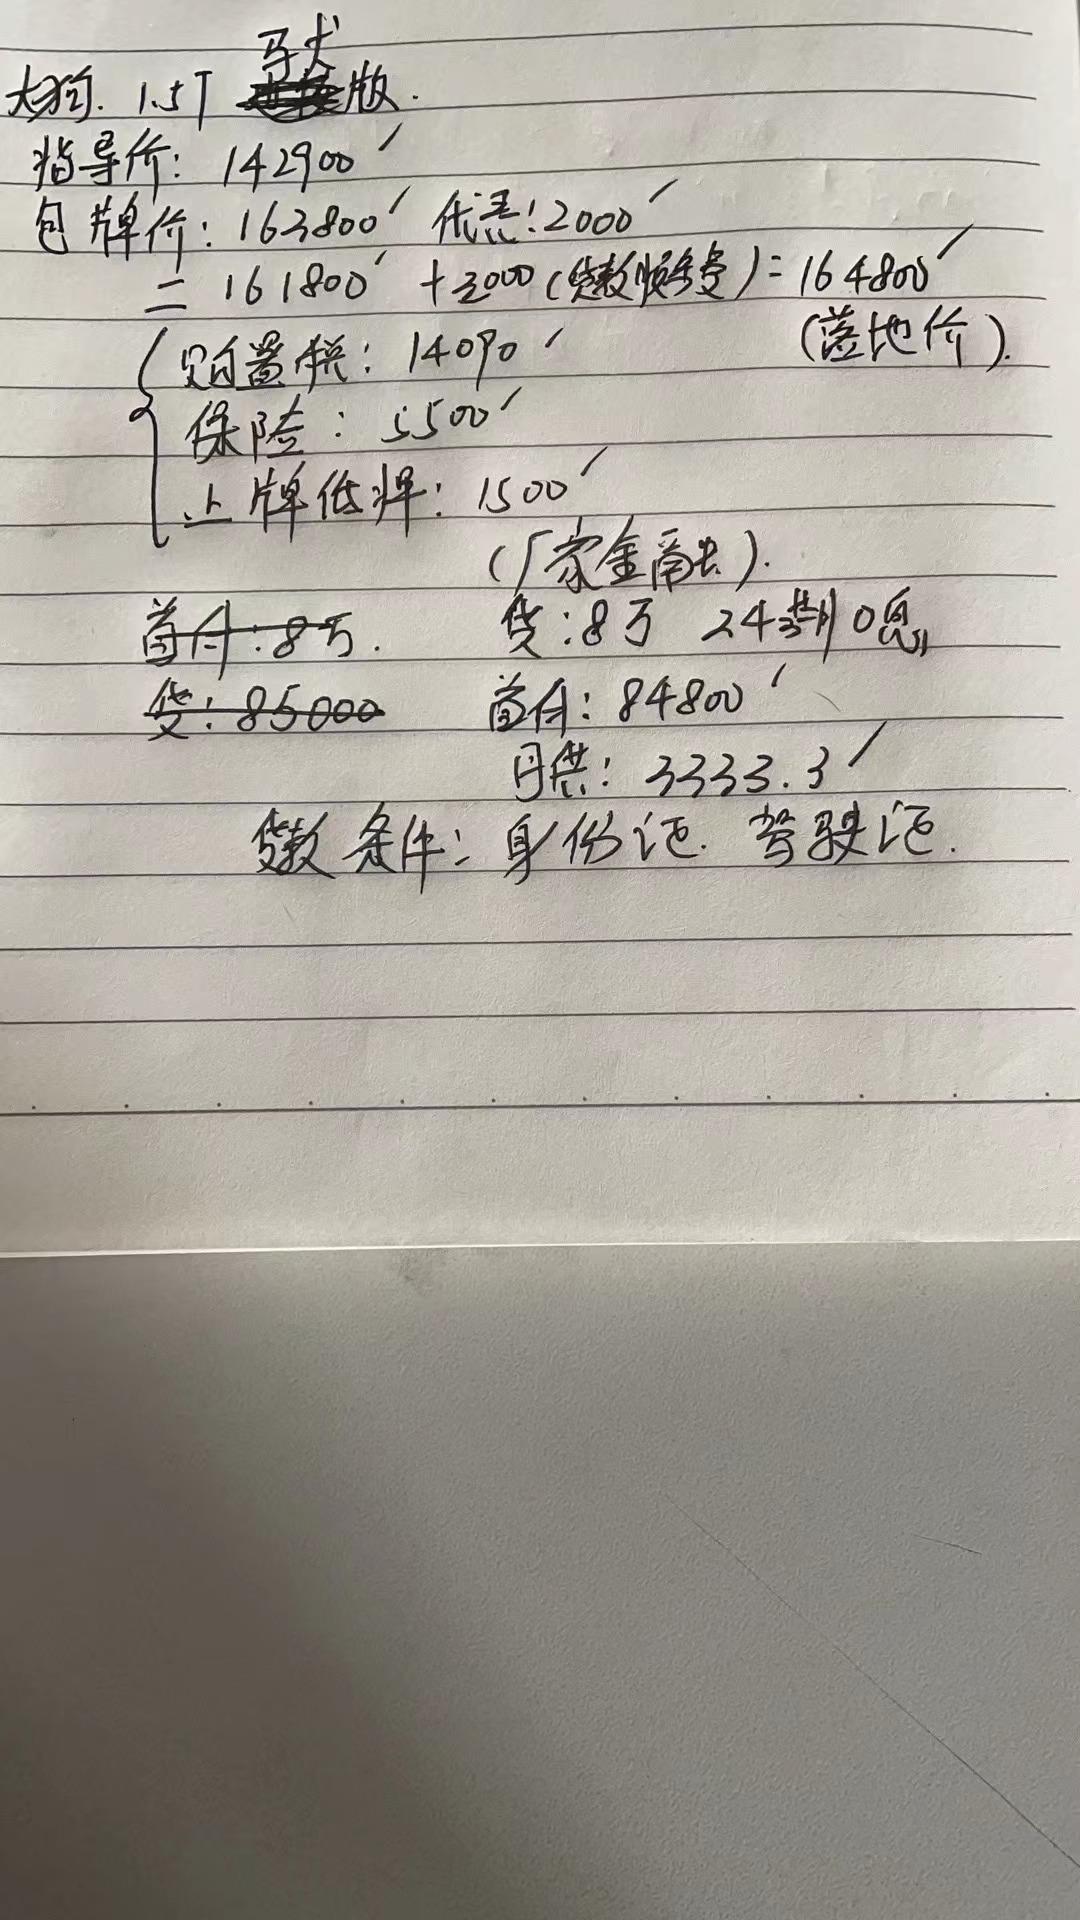 马犬
大狗. 1.5T 版.
指导价: 142900
包牌价: 163800 优惠: 2000
= 161800 +3000 (贷款服务费) = 164800
(落地价).
购置税: 14090
保险: 5500
上牌低押: 1500
(厂家金融).
首付: 8万. 贷: 8万 24期 0息
贷: 85000 首付: 84800
月供: 3333.3
贷款条件: 身份证. 驾驶证.